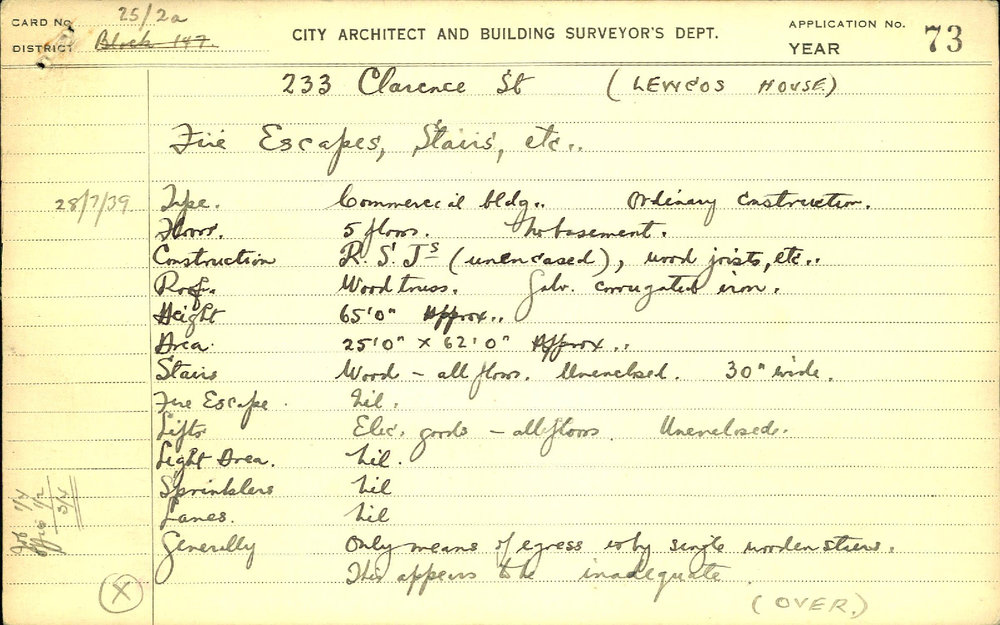 CARD No. 25/2a
DISTRICT Block 147.
CITY ARCHITECT AND BUILDING SURVEYOR'S DEPT.
APPLICATION No.
YEAR 73
233 Clarence St (LEWCOS HOUSE)
Fire Escapes, Stairs, etc..
28/7/39 Type. Commercial bldg.. Ordinary Construction.
Floors. 5 floors. No basement.
Construction R.S.Js (unencased), wood joists, etc..
Roof. Wood truss. Galv. corrugated iron.
Height 65'0" Approx..
Area. 25'0" x 62'0" Approx..
Stairs Wood – all floors. Unenclosed. 30" wide.
Fire Escape. Nil.
Lifts Elec. goods – all floors. Unenclosed.
Light Area. Nil.
Sprinklers Nil
Lanes. Nil
Generally Only means of egress is by single wooden stairs.
This appears to be inadequate.
(OVER.)
Job 1/4
Office 1/2
3/4
X